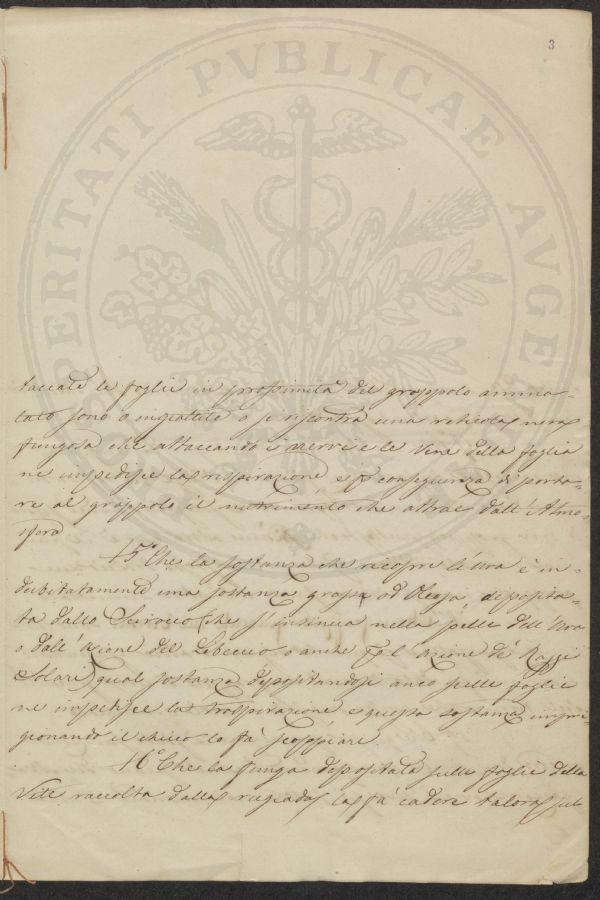 3
PROSPERITATI PVBLICAE AVGENDAE
taccate le foglie in prossimità del grappolo amma-
lato sono o ingiallite o si riscontra una reticola nera
fungosa che attaccando i nervi e le vene della foglia
ne impedisce la respirazione e p conseguenza di porta-
re al grappolo il nutrimento che attrae dall' Atmo-
sfera
15° Che la sostanza che ricopre l'uva è in-
dubitatamente una sostanza grassa od Oleosa, deposita-
ta dallo Scirocco (che s'insinua nella pelle dell' Uva
o dall' azione del Libeccio o anche p l' azione de' Raggi
Solari) qual sostanza depositandosi anco sulle foglie
ne impedisce la traspirazione, e questa sostanza impri-
gionando il chicco lo fà scoppiare.
16° Che la funga depositata sulle foglie della
Vite raccolta dalla rugiada la fà cadere talora sul